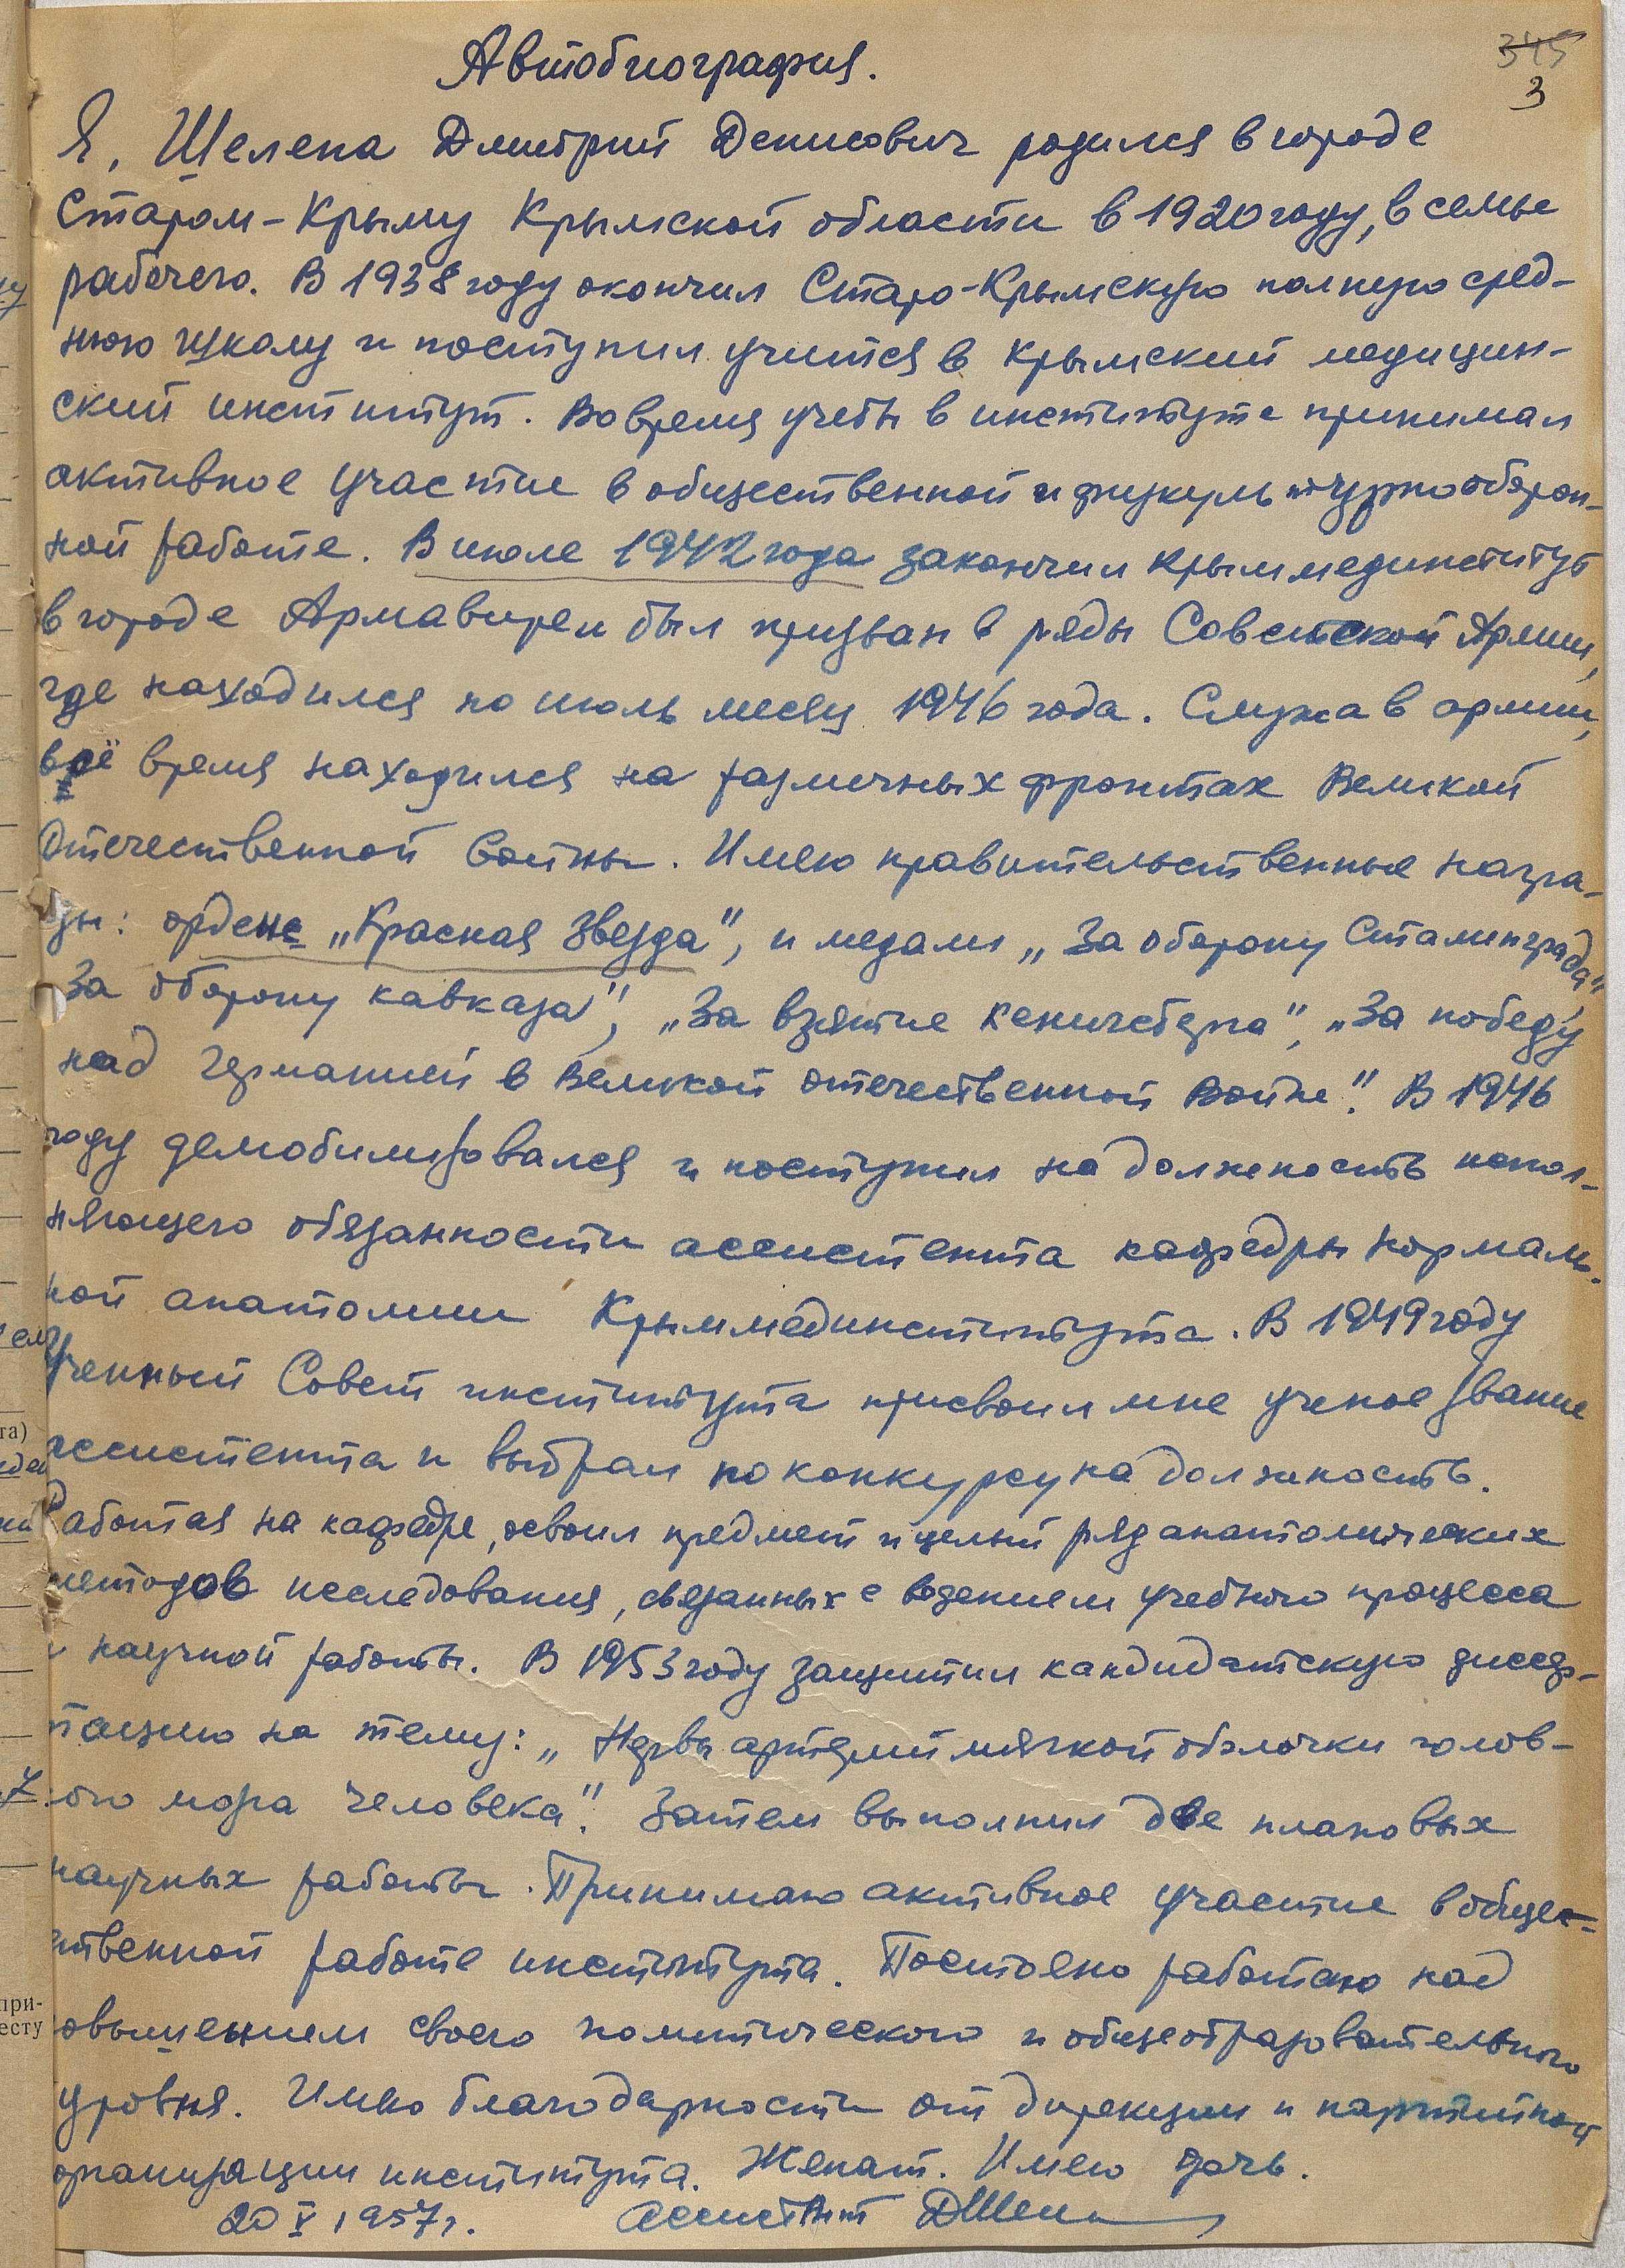 345
3
Автобиография.
Я, Шелепа Дмитрий Денисович родился в городе
Старом-Крыму Крымской области в 1920 году, в семье
рабочего. В 1938 году окончил Старо-Крымскую полную сред-
нюю школу и поступил учится в Крымский медицин-
ский институт. Во время учебы в институте принимал
активное участие в общественной и физкультурно оборон-
ной работе. В июле 1942 года закончил Крыммединститут
в городе Армавире и был призван в ряды Советской Армии,
где находился по июль месяц 1946 года. Служа в армии,
всё время находился на различных фронтах Великой
Отечественной войны. Имею правительственные награ-
ды: ордена „Красная звезда", и медали „За оборону Сталинграда"
За оборону кавказа", „За взятие Кенигсберга", „За победу
над Германией в Великой отечественной Войне". В 1946
году демобилизовался и поступил на должность испол-
няющего обязанности ассистента кафедры нормаль-
ной анатомии Крыммединститута. В 1949 году
Ученный Совет института присвоил мне ученое звание
ассистента и выбрал по конкурсу на должность.
Работая на кафедре, освоил предмет и целый ряд анатомических
методов исследования, связанных с ведением учебного процесса
и научной работы. В 1953 году защитил кандидатскую диссер-
тацию на тему: „Нервы артерий мягкой оболочки голов-
ного мозга человека". Затем выполнил две плановых
научных работы. Принимаю активное участие в общес-
ственной работе института. Постоянно работаю над
повышением своего политического и общеобразовательного
уровня. Имею благодарности от дирекции и партийной
организации института. Женат. Имею дочь.
20 V 1957 г. ассистент ДШеле